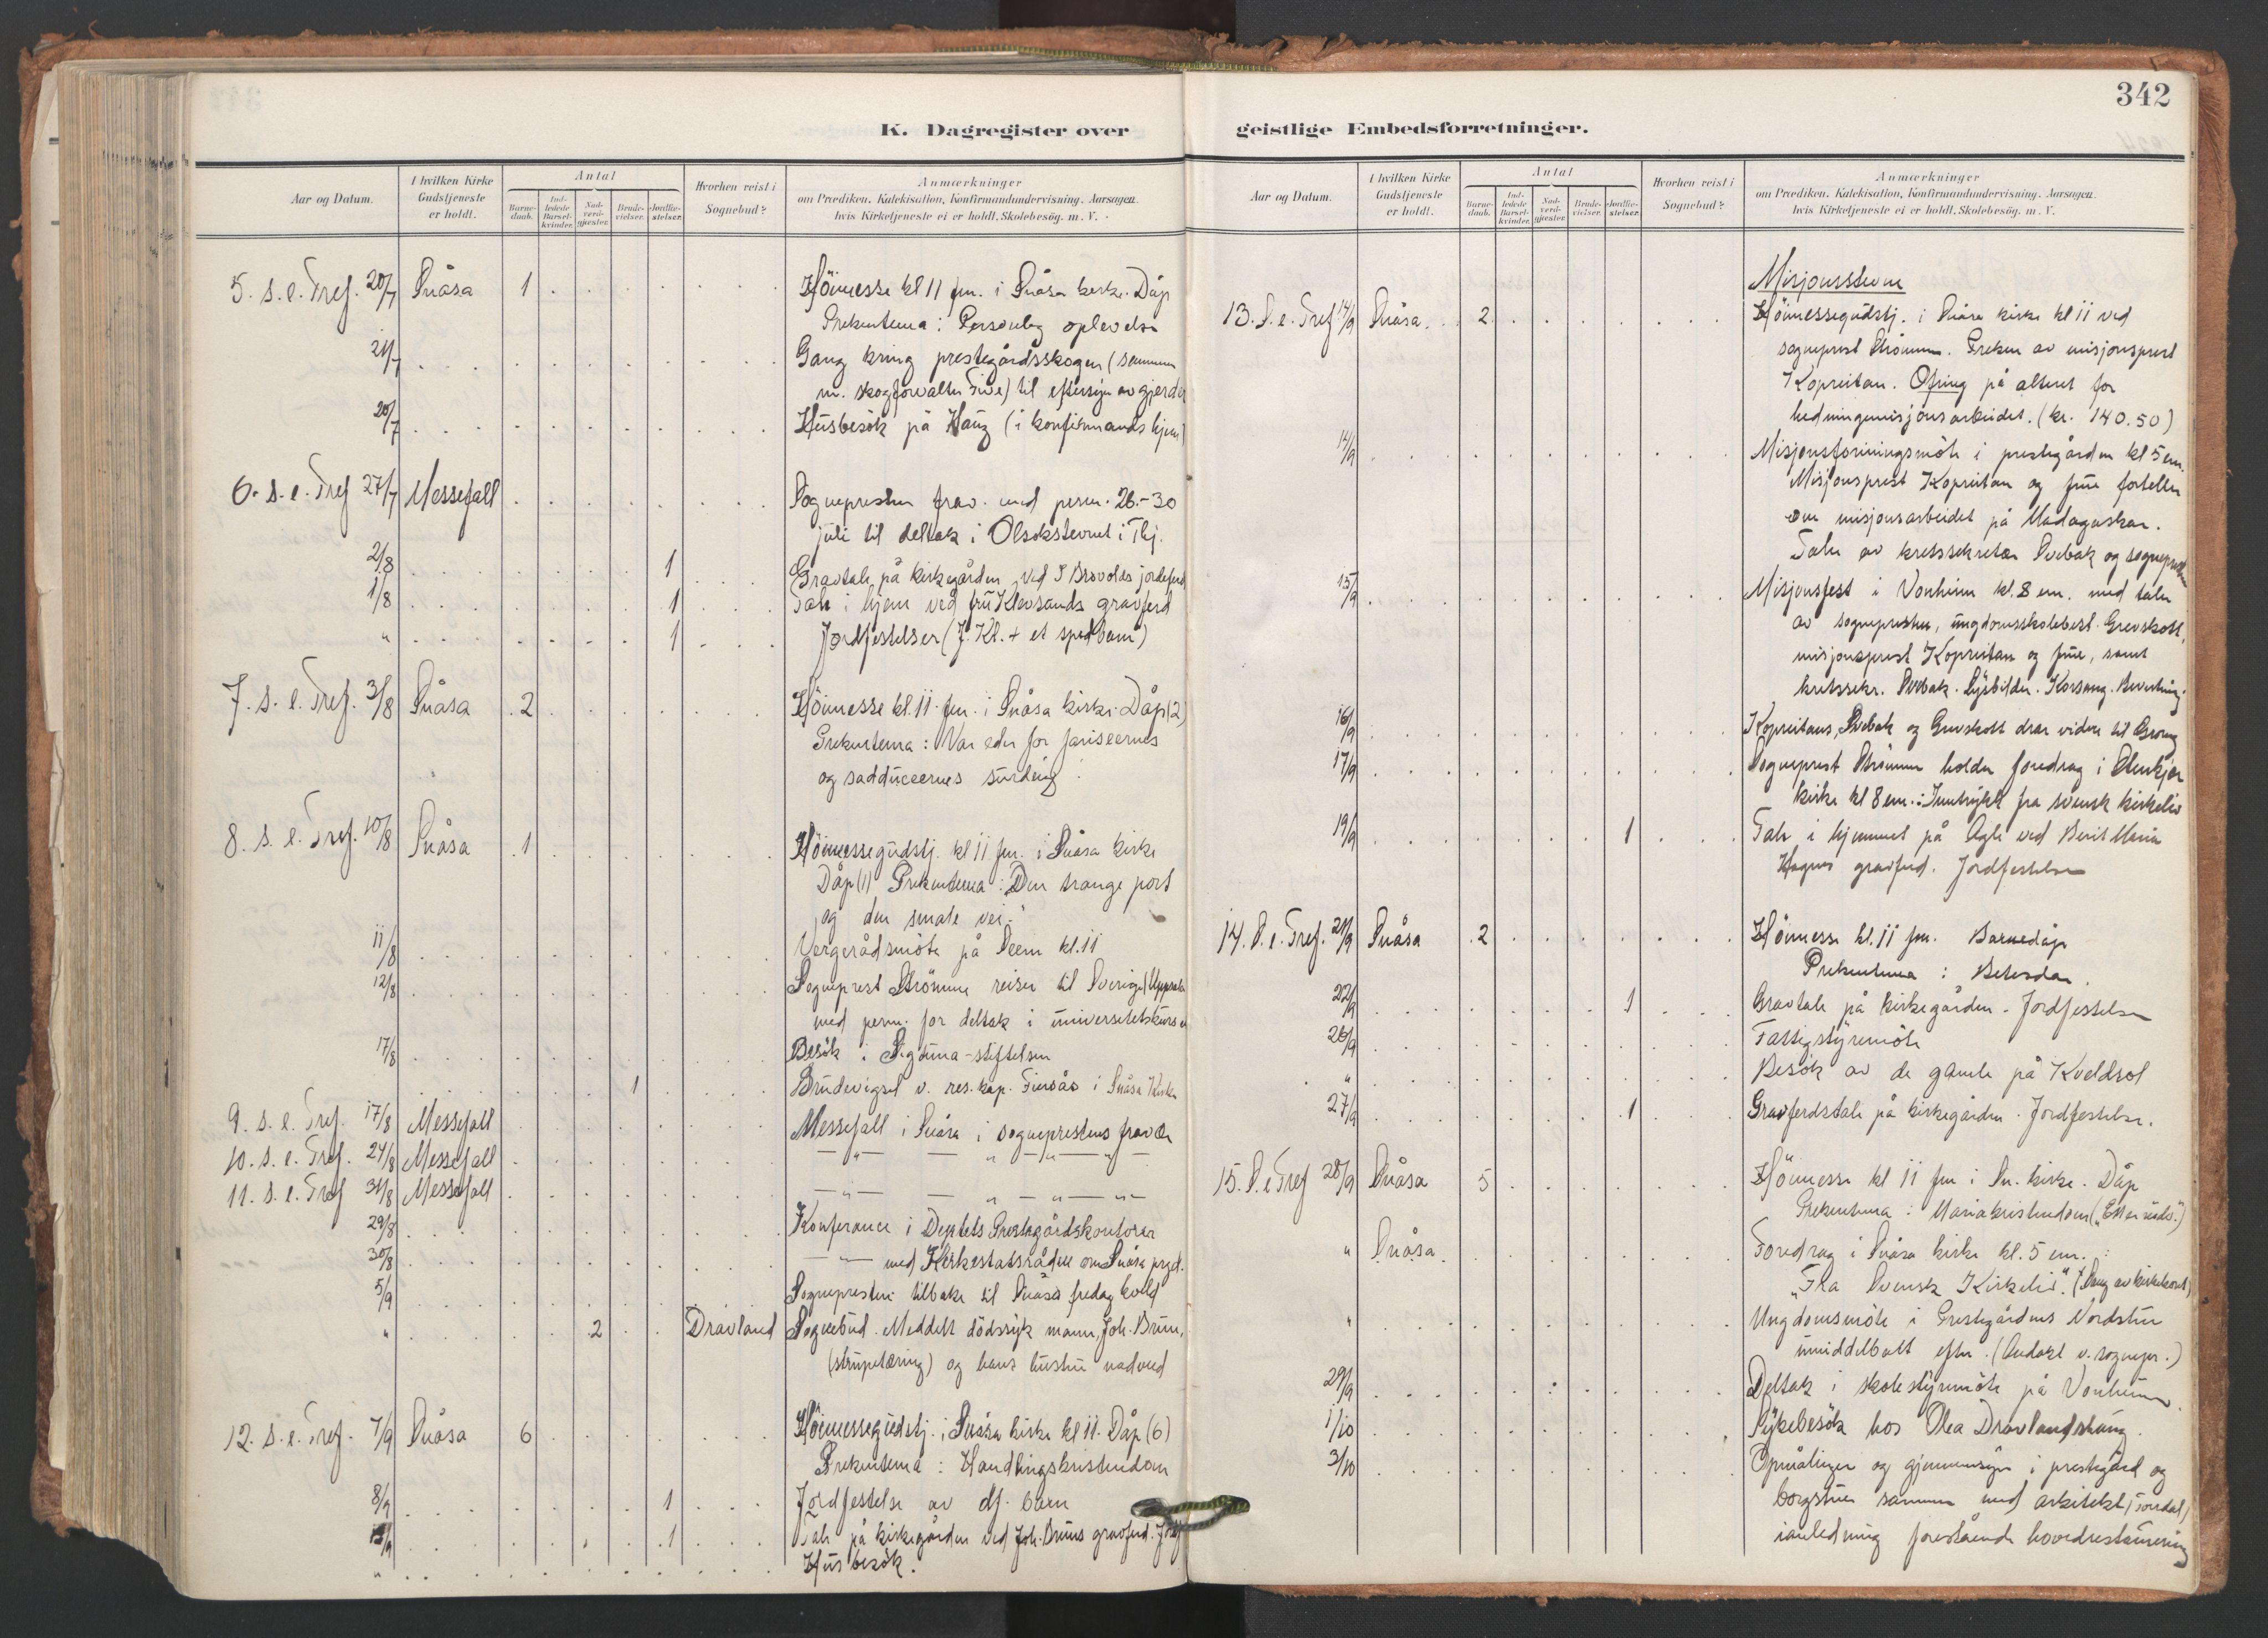 342
K. Dagregister over geistlige Embedsforretninger.
Aar og Datum.
I hvilken Kirke Gudstjeneste er holdt.
Antal
Barne-daab.
Ind-ledede Barsel-kvinder.
Nad-verd-gjester.
Brude-vielser.
Jordfæ-stelser.
Hvorhen reist i Sognebud?
Anmærkninger
om Prædiken. Katekisation, Konfirmandundervisning. Aarsagen.
hvis Kirketjeneste ei er holdt. Skolebesøg. m. V.
5. s. e. Tref. 20/7 Snåsa 1 Höimesse kl 11 fm. i Snåsa kirke. Dåp
Prekentema: Personlig oplevelse
21/7 Gang kring prestegårdsskogen (sammen
m. skogforvalter Five) til eftersyn av gjerder
20/7 Husbesök på Haug (i konfirmands hjem)
6. s. e. Tref 27/7 Messefall Sognepresten frav. med perm. 26.-30
juli til deltak i Olsokstevnet i Thj.
2/8 1 Gravtale på kirkegården ved J Brovolds jordeferd
1/8 1 Tale i hjem ved fru Klevsands gravferd
" 1 Jordfestelser (J. Kl. + et spedbarn)
7. s. e. Tref. 3/8 Snåsa 2 Höimesse kl. 11 fm. i Snåsa kirke. Dåp (2)
Prekentema: Var eder for fariseernes
og sadduceernes surdeig
8. s. e. Tref. 10/8 Snåsa 1 Höimessegudstj. kl 11 fm. i Snåsa kirke
Dåp (1) Prekentema: Den trange port
og den smale vei."
11/8 Vergerådsmöte på Seem kl. 11
12/8 Sogneprest Strömme reiser til Sverige (Uppsala
med perm. for deltak i universitetskurs
17/8 Besök i Sigtuna-stiftelsen
1 Brudevigsel v. res. kap. i Snåsa Kirke
9. s. e. Tref. 17/8 Messefall Messefall i Snåsa i sogneprestens fravær
10. s. e. Tref. 24/8 Messefall — " — — " — " — " —
11. s. e. Tref 31/8 Messefall — " — — " — " — " —
29/8 Konferance i Deptets Prestegårdskontorer
30/8 — " — med Kirkestatsråden om Snåsa prgd.
5/9 Sognepresten tilbake til Snåsa fredag kveld
" 2 Dravland Sognebud. Meddelt dödssyk mann, Joh. Bruu,
(struptæring) og hans hustru nadverd
12. s. e. Tref. 7/9 Snåsa 6 Höimessegudstj. i Snåsa kirke kl 11. Dåp (6)
Prekentema: Handlingskristendom
8/9 1 Jordfestelse av df. barn
1 Tale på kirkegården ved Joh. Bruus gravferd. Jordf
" Husbesök.
Misjonsstevne
13. S. e. Tref 14/9 Snåsa 2 Höimessegudstj. i Snåsa kirke kl 11 ved
sogneprest Strömme. Preken av misjonsprest
Kopreitan. Ofring på alteret for
hedningemisjonsarbeidet. (kr. 140.50)
14/9 Misjonsforeningsmöte i prestegården kl 5 em.
Misjonsprest Kopreitan og frue forteller
om misjonsarbeidet på Madagaskar.
Taler av kretssekretær Svebak og sognepresten
15/9 Misjonsfest i Vonheim kl. 8 em. med taler
av sognepresten, ungdomsskolebest. Grevskott,
misjonsprest Kopreitan og frue, samt
kretssekr. Svebak. Lysbilder. Korsang. Bevertning.
16/9 Kopreitans, Svebak og Grevskott drar videre til Grong
17/9 Sogneprest Strömme holder foredrag i Stenkjær
kirke kl 8 em.: Inntrykk fra svensk kirkeliv
19/9 1 Tale i hjemmet på Agle ved Berit Maria
Hagens gravferd. Jordfestelse
14. S. e. Tref. 21/9 Snåsa 2 Höimesse kl. 11 fm. Barnedåp
Prekentema: Betesda.
22/9 1 Gravtale på kirkegården. Jordfestelse
26/9 Fattigstyremöte
" Besök av de gamle på Kveldsol
27/9 1 Gravferdstale på kirkegården. Jordfestelse.
15. S. e Tref 28/9 Snåsa 5 Höimesse kl 11 fm i Sn. kirke. Dåp
Prekentema: Mariakristendom ("Ett er nödv.")
" Snåsa Foredrag i Snåsa kirke kl. 5 em.:
"Fra Svensk Kirkeliv." (Sang av kirkekoret)
" Ungdomsmöte i Prestegårdens Nordstue
umiddelbart efter. (Andakt v. sognepr.)
29/9 Deltak i skolestyremöte på Vonheim
1/10 Sykebesök hos Olea Dravlandshaug.
3/10 Opmålinger og gjennemsyn i prestegård og
borgstue sammen med arkitekt Tverdal,
i anledning forestående hovedrestaurering